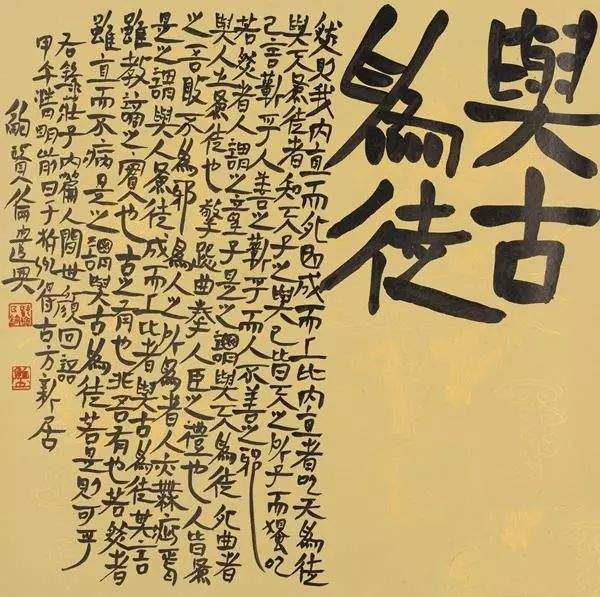 與古
為徒
然則我內直而外曲成而上比內直者以天為徒
與天為徒者知天子之與己皆天之所子而獨以
己言蘄乎人善之蘄乎而人不善之邪
若然者人謂之童子是之謂與天為徒外曲者
與人之為徒也擎跽曲拳人臣之禮也人皆為
之吾敢不為邪為人之所為者人亦無疵焉
是之謂與人為徒成而上比者與古為徒其言
雖教讁之實也古之有也非吾有也若然者
雖直而不病是之謂與古為徒若是則可乎
右錄莊子內篇人間世顏回語
甲午清明前四日于杭州得古方新居
鮑賢倫遣興